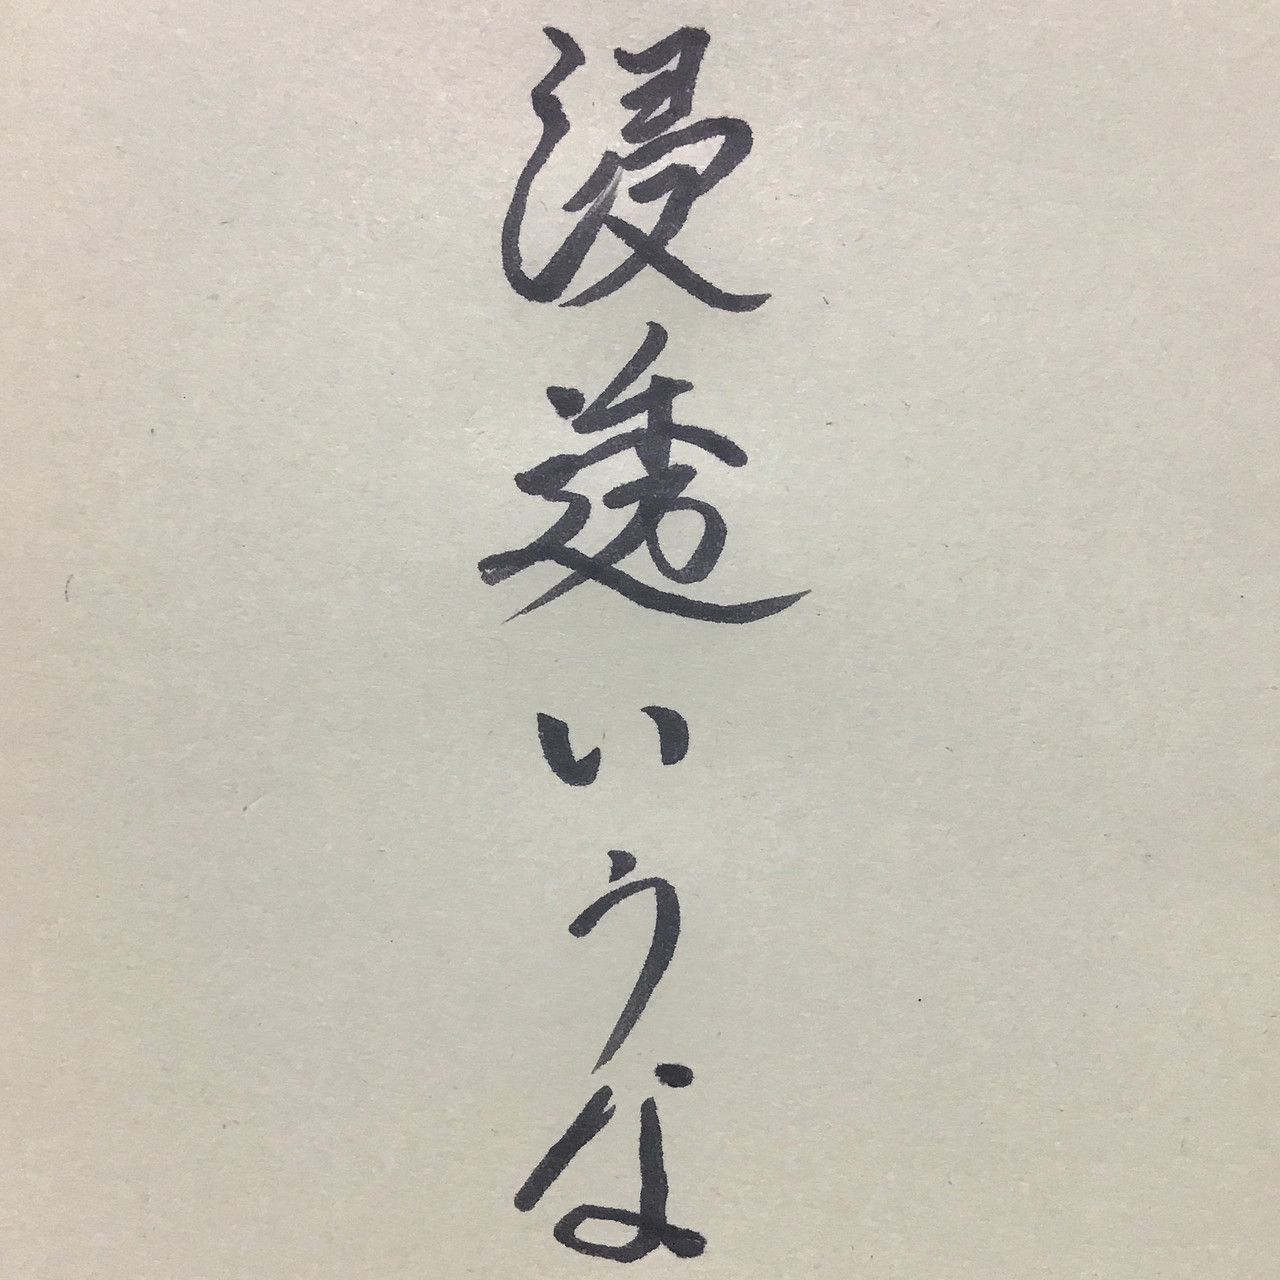 浸透いうな